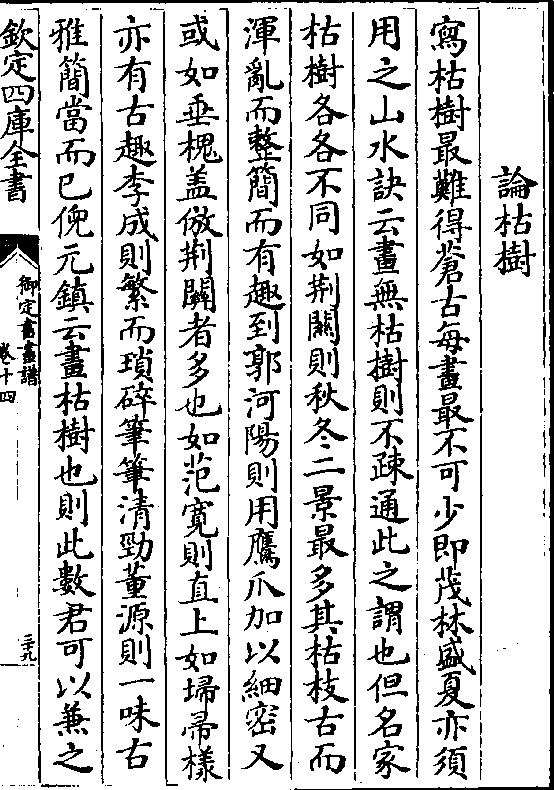 論枯樹
寫枯樹最難得蒼古每畫最不可少即茂林盛夏亦須
用之山水訣云畫無枯樹則不疎通此之謂也但名家
枯樹各各不同如荆關則秋冬二景最多其枯枝古而
渾亂而整簡而有趣到郭河陽則用鷹爪加以細密又
或如垂槐盖倣荆關者多也如范寛則直上如埽帚樣
亦有古趣李成則繁而瑣碎筆筆清勁董源則一味古
雅簡當而已倪元鎮云畫枯樹也則此數君可以兼之
欽定四庫全書
御定書畫譜
卷十四
三九